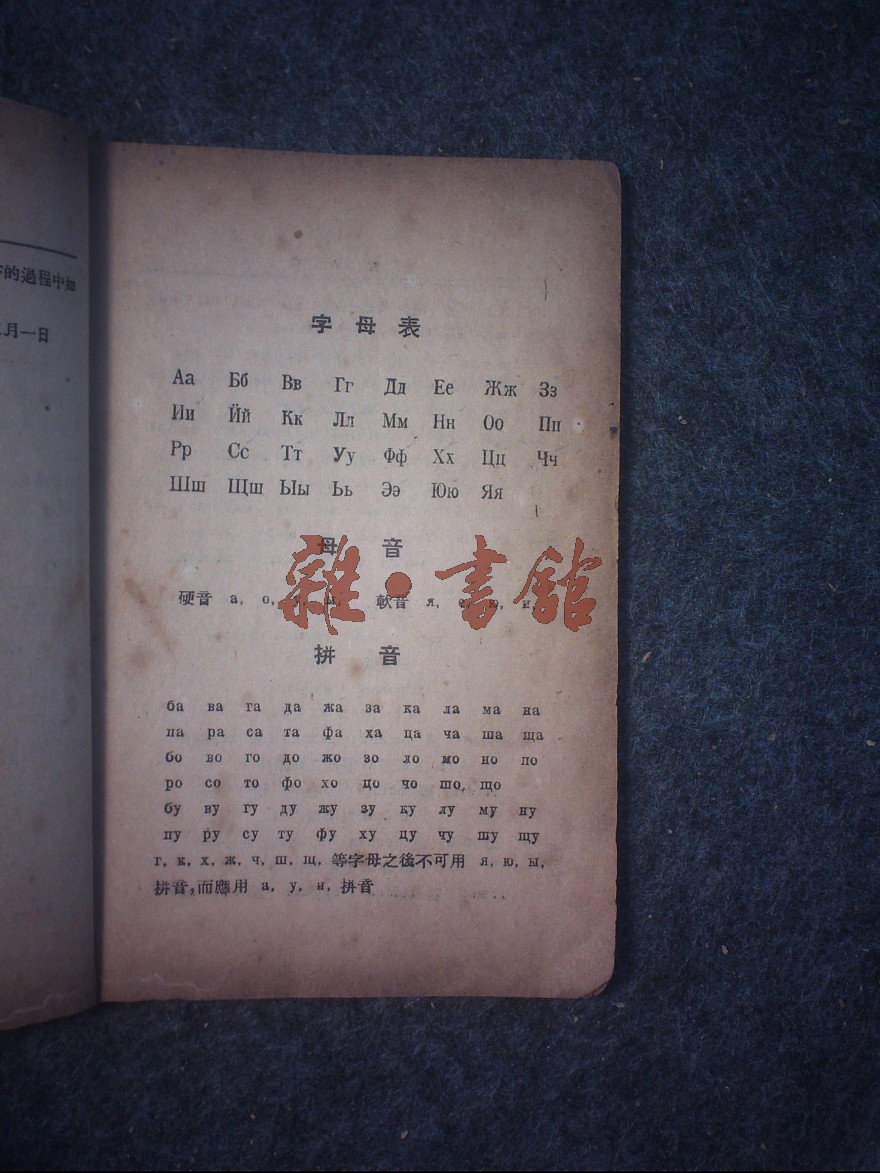 的過程中如
月一日
字母表
Аа Бб Вв Гг Дд Ее Жж Зз
Ии Йй Кк Лл Мм Нн Оо Пп
Рр Сс Тт Уу Фф Хх Цц Чч
Шш Щш Ыы Ьь Ээ Юю Яя
母音
硬音 а, о, у, ы, 軟音 я, е, ю, и
雜·書館
拼音
ба ва га да жа за ка ла ма на
па ра са та фа ха ца ча ша ща
бо во го до жо зо ло мо но по
ро со то фо хо цо чо шо, що
бу ву гу ду жу зу ку лу му ну
пу ру су ту фу ху цу чу шу щу
г, к, х, ж, ч, ш, щ, 等字母之後不可用 я, ю, ы,
拼音,而應用 а, у, и, 拼音